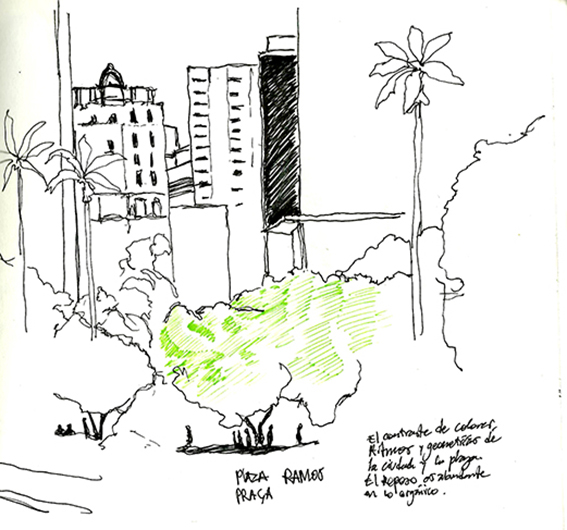 PLAZA RAMOS
PRAÇA
El contraste de colores,
Ritmos y geometrías de
la ciudad y la plaza.
El Reposo es abundante
en lo orgánico.